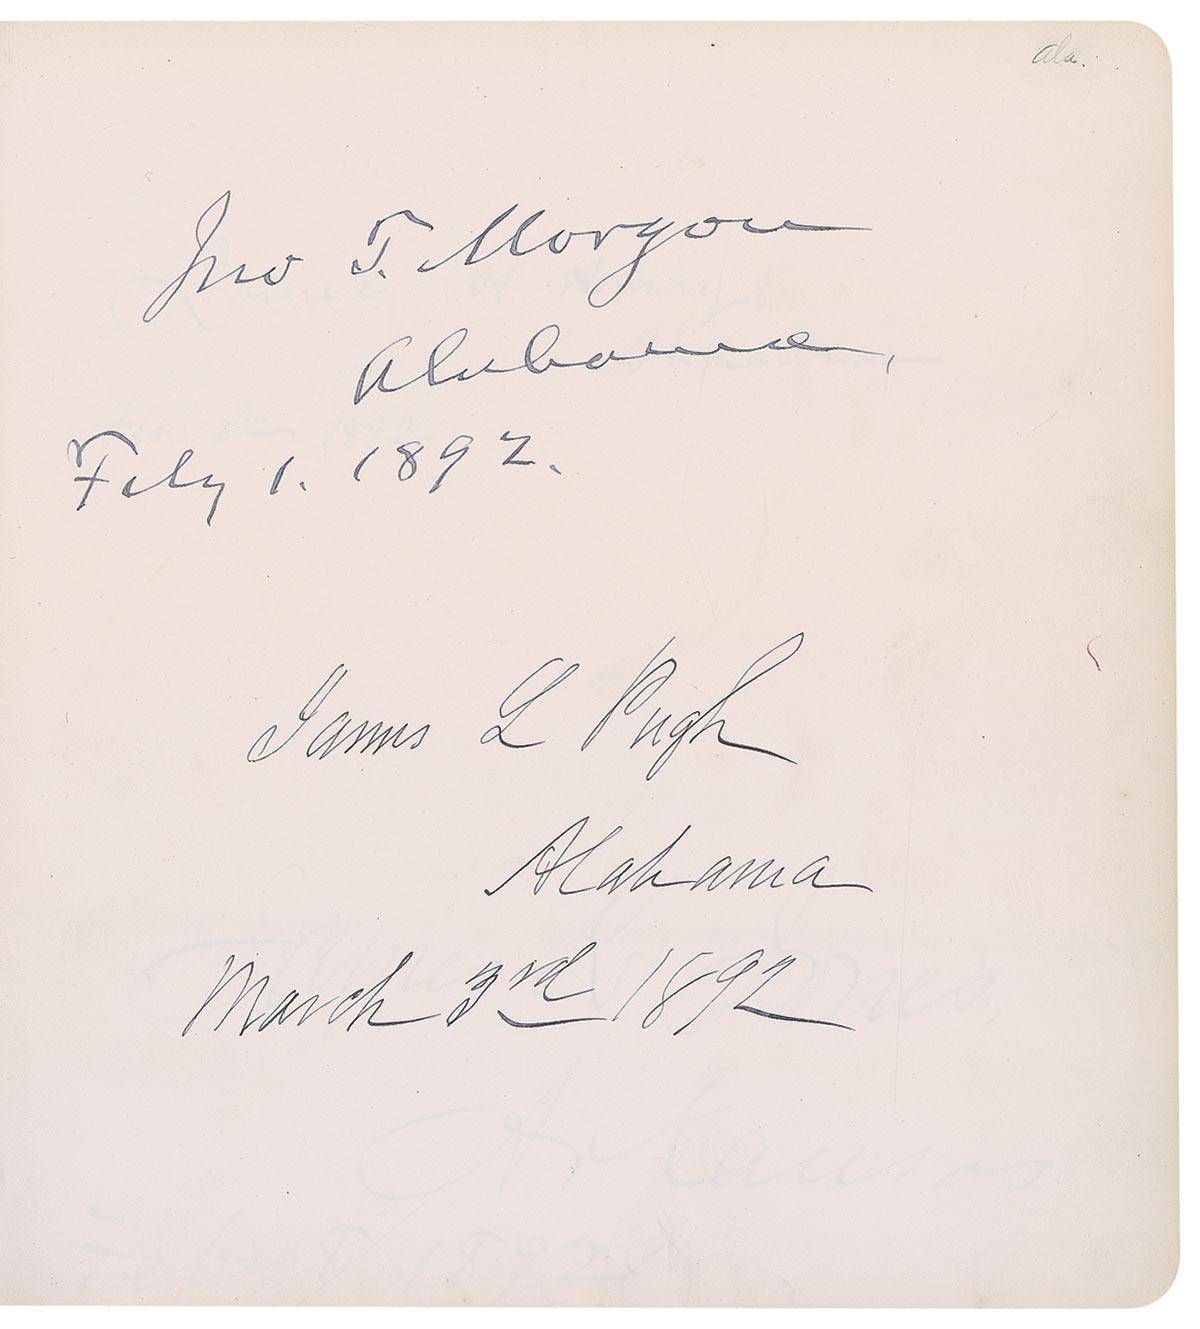 Ala.
Jno T. Morgan
Alabama,
Feby 1. 1892.
James L Pugh
Alabama
March 3rd 1892
Arkansas
1892